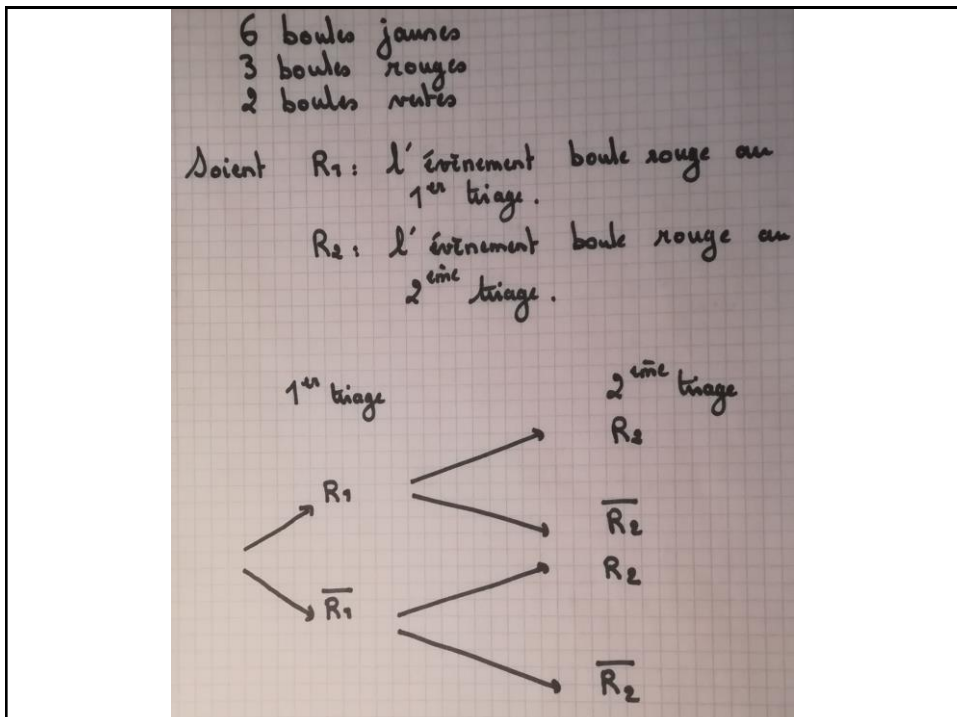 6 boules jaunes
3 boules rouges
2 boules vertes
Soient R1 : l'évènement boule rouge au
1er tirage.
R2 : l'évènement boule rouge au
2ème tirage.
1er tirage
2ème tirage
R2
R1
R̅2̅
R2
R̅1̅
R̅2̅